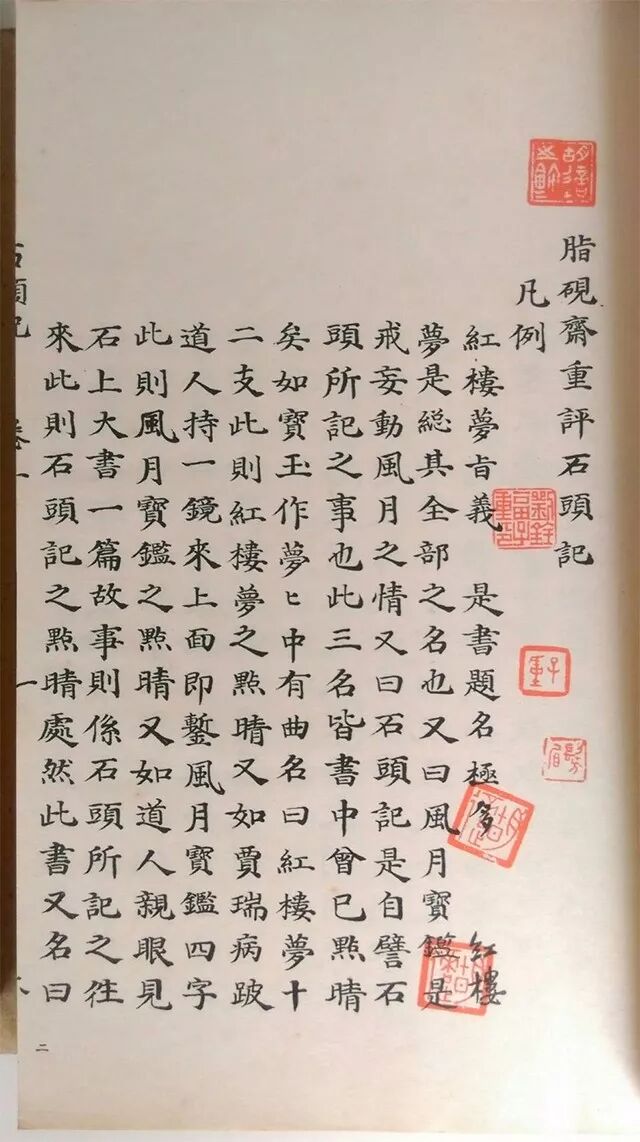 胡適之鉥
脂硯齋重評石頭記
凡例
劉銓畐子重印
子重
髣眉
紅樓夢旨義 是書題名極多 紅樓
夢是総其全部之名也又曰風月寶鑑是
戒妄動風月之情又曰石頭記是自譬石
頭所記之事也此三名皆書中曾已㸃晴
矣如寶玉作夢ヒ中有曲名曰紅樓夢十
二支此則紅樓夢之㸃晴又如賈瑞病跛
道人持一鏡來上面即鏨風月寶鑑四字
此則風月寶鑑之㸃晴又如道人親眼見
石上大書一篇故事則係石頭所記之徃
來此則石頭記之㸃晴處然此書又名曰
石頭記 卷一 一
二